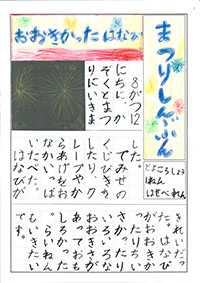 まつりしんぶん
おおきかったはなび
とよころしょう
1ねん
はせべれん
8がつ12
にちに、か
ぞくとまつ
りにいきま
した。
でみせの
くじびきを
したり、
らあげをお
なか
いたべた。
はなびが
きれいだっ
た。はなび
がおおきか
ったりちい
さかったり
いろいろな
おおきさが
あっておも
しろかった。
らいねん
もいきたい
です。